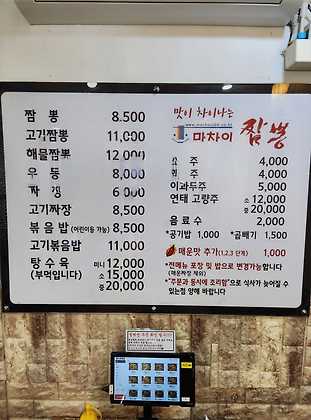 짬 뽕 8,500
고기짬뽕 11,000
해물짬뽕 12,000
우 동 8,000
짜 장 6,000
고기짜장 8,500
볶음밥 (어린이동 가능) 8,500
고기볶음밥 11,000
탕수육 미니 12,000
(부먹입니다) 소 15,000
중 20,000
맛이 차이나는
마차이 짬뽕
소 주 4,000
맥 주 4,000
이과두주 5,000
연태 고량주 소 12,000
중 20,000
음료수 2,000
*공기밥 1,000 *곱빼기 1,500
매운맛 추가 (1,2,3 단계) 1,000
*전메뉴 포장 및 밥으로 변경가능합니다
(매운짜장 제외)
*"주문과 동시에 조리함"으로 식사가 늦어질 수
있는점 양해 바랍니다